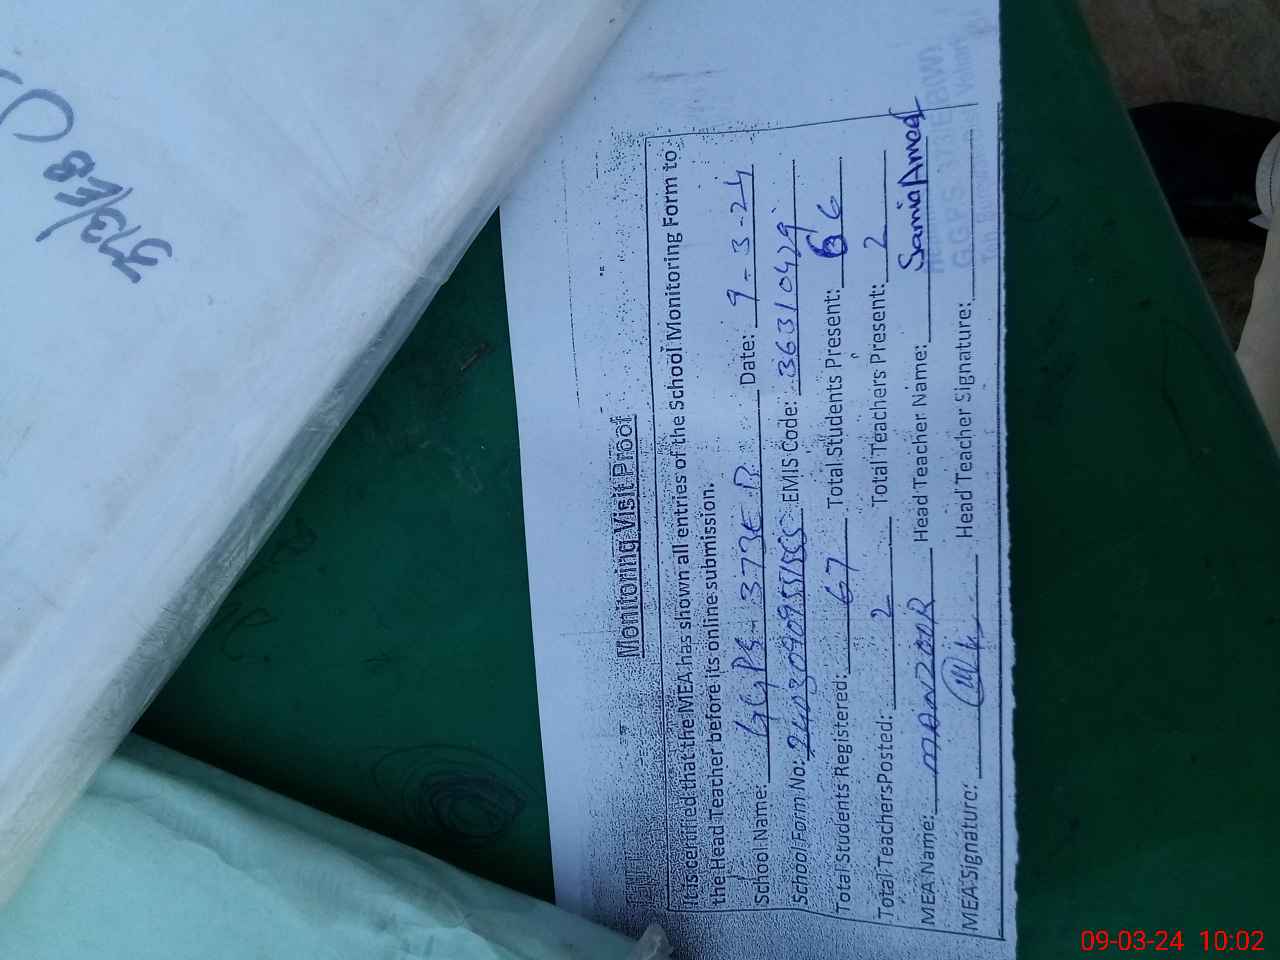 Monitoring Visit Proof
It is certified that the MEA has shown all entries of the School Monitoring Form to
the Head Teacher before its online submission.
School Name: GGPS 373 E.B Date: 9-3-24
School Form No: EMIS Code: 36310429
Total Students Registered: 67 Total Students Present: 66
Total TeachersPosted: 2 Total Teachers Present: 2
MEA Name: MANZOOR Head Teacher Name: Samia Ameer
MEA Signature: Head Teacher Signature:
373/EB
09-03-24 10:02